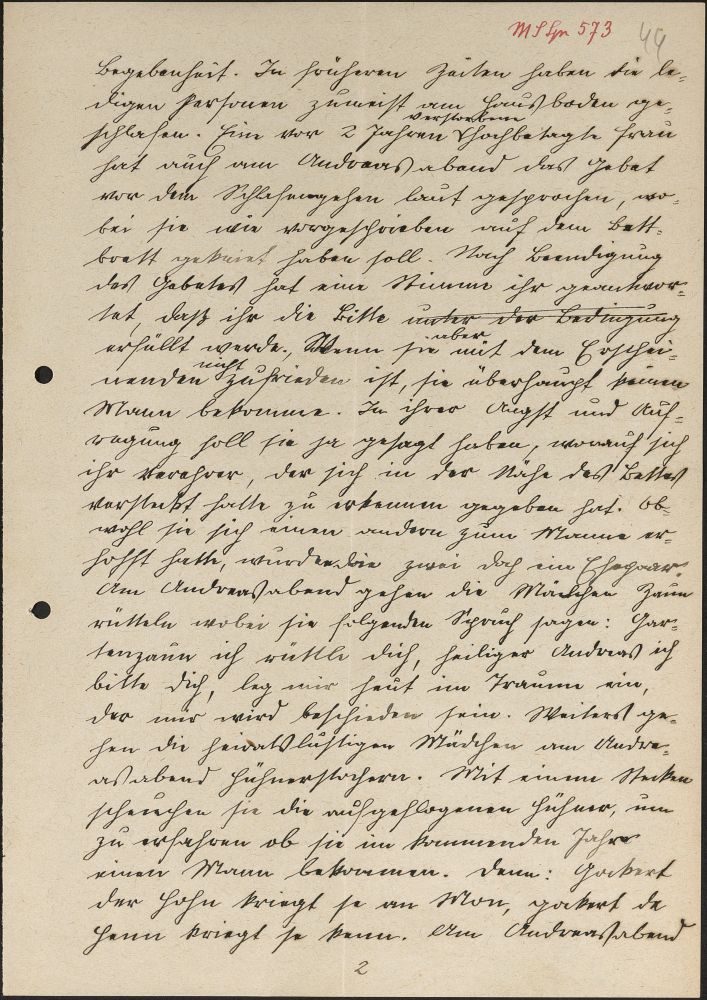 MS Spr 573 44
Begebenheit. In früheren Zeiten haben die le=
digen Personen zumeist am Hausboden ge=
schlafen. Eine vor 2 Jahren verstorbene hochbetagte Frau
hat auch am Andreasabend das Gebet
vor dem Schlafengehen laut gesprochen, wo=
bei sie wie vorgeschrieben auf dem Bett=
brett gekniet haben soll. Nach Beendigung
des Gebetes hat eine Stimme ihr geantwor=
tet, daß ihr die Bitte unter der Bedingung
erfüllt werde., Wenn sie aber mit dem Erschei=
nenden nicht zufrieden ist, sie überhaupt keinen
Mann bekomme. In ihrer Angst und Auf=
regung soll sie ja gesagt haben, worauf sich
ihr Verehrer, der sich in der Nähe des Bettes
versteckt hatte zu erkennen gegeben hat. Ob=
wohl sie sich einen andern zum Manne er=
hofft hatte, wurden die zwei doch ein Ehepaar.
Am Andreasabend gehen die Mädchen Zaun
rütteln wobei sie folgenden Spruch sagen: Gar=
tenzaun ich rüttle dich, heiliger Andreas ich
bitte dich, leg mir heut im Traume ein,
der mir wird beschieden sein. Weiters ge=
hen die heiratslustigen Mädchen am Andre=
asabend Hühnerstochern. Mit einem Stecken
scheuchen sie die aufgeflogenen Hühner, um
zu erfahren ob sie im kommenden Jahre
einen Mann bekommen. Denn: Gackert
der Hahn kriegt se an Mon, gackert de
Henn kriegt se kenn. Am Andreasabend
2